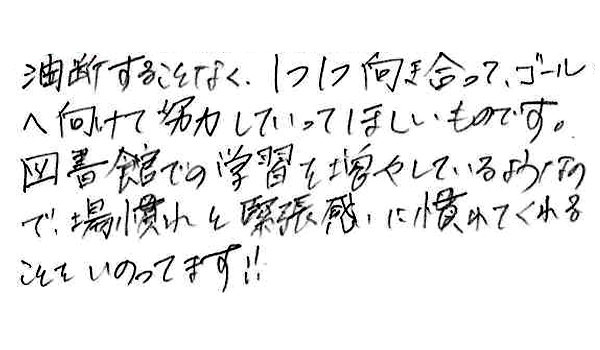 油断することなく、1つ1つ向き合って、ゴール
へ向けて努力していってほしいものです。
図書館での学習を増やしているようなの
で、場慣れと緊張感に慣れてくれる
ことをいのってます!!